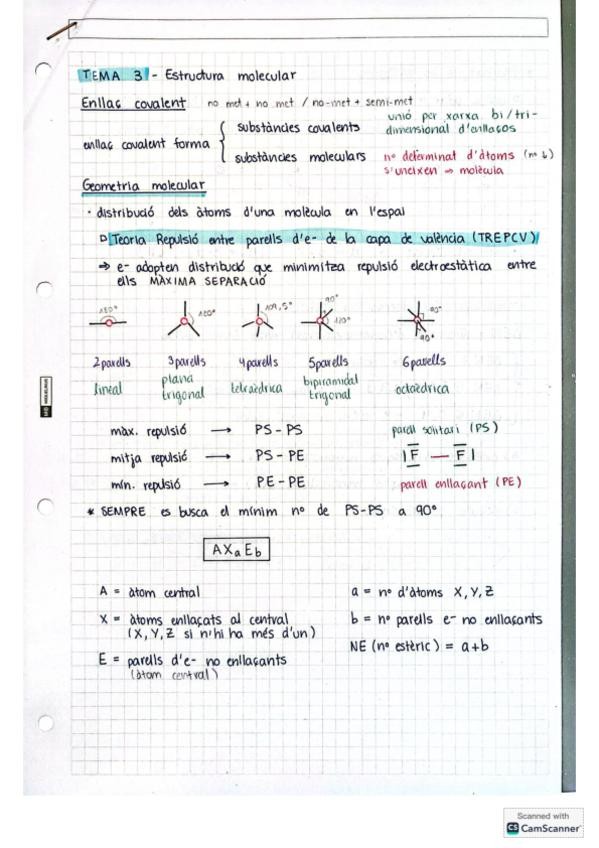 TEMA 3 - Estructura molecular
Enllaç covalent no met + no met / no-met + semi-met
enllaç covalent forma { substàncies covalents unió per xarxa bi/tri-dimensional d'enllaços
substàncies moleculars nº determinat d'àtoms (nº b) s'uneixen ⇒ molècula
Geometria molecular
· distribució dels àtoms d'una molècula en l'espai
Teoria Repulsió entre parells d'e- de la capa de valència (TREPCV)
⇒ e- adopten distribució que minimitza repulsió electroestàtica entre
ells MÀXIMA SEPARACIÓ
180° 120° 109,5° 90° 120° 90° 90°
2 parells 3 parells 4 parells 5 parells 6 parells
lineal plana trigonal tetraèdrica bipiramidal trigonal octaèdrica
màx. repulsió → PS - PS parell solitari (PS)
mitja repulsió → PS - PE |F — F|
mín. repulsió → PE - PE parell enllaçant (PE)
* SEMPRE es busca el mínim nº de PS-PS a 90°
AXaEb
A = àtom central a = nº d'àtoms X, Y, Z
X = àtoms enllaçats al central b = nº parells e- no enllaçants
(X, Y, Z si n'hi ha més d'un) NE (nº estèric) = a+b
E = parells d'e- no enllaçants
(àtom central)
Scanned with
CS CamScanner